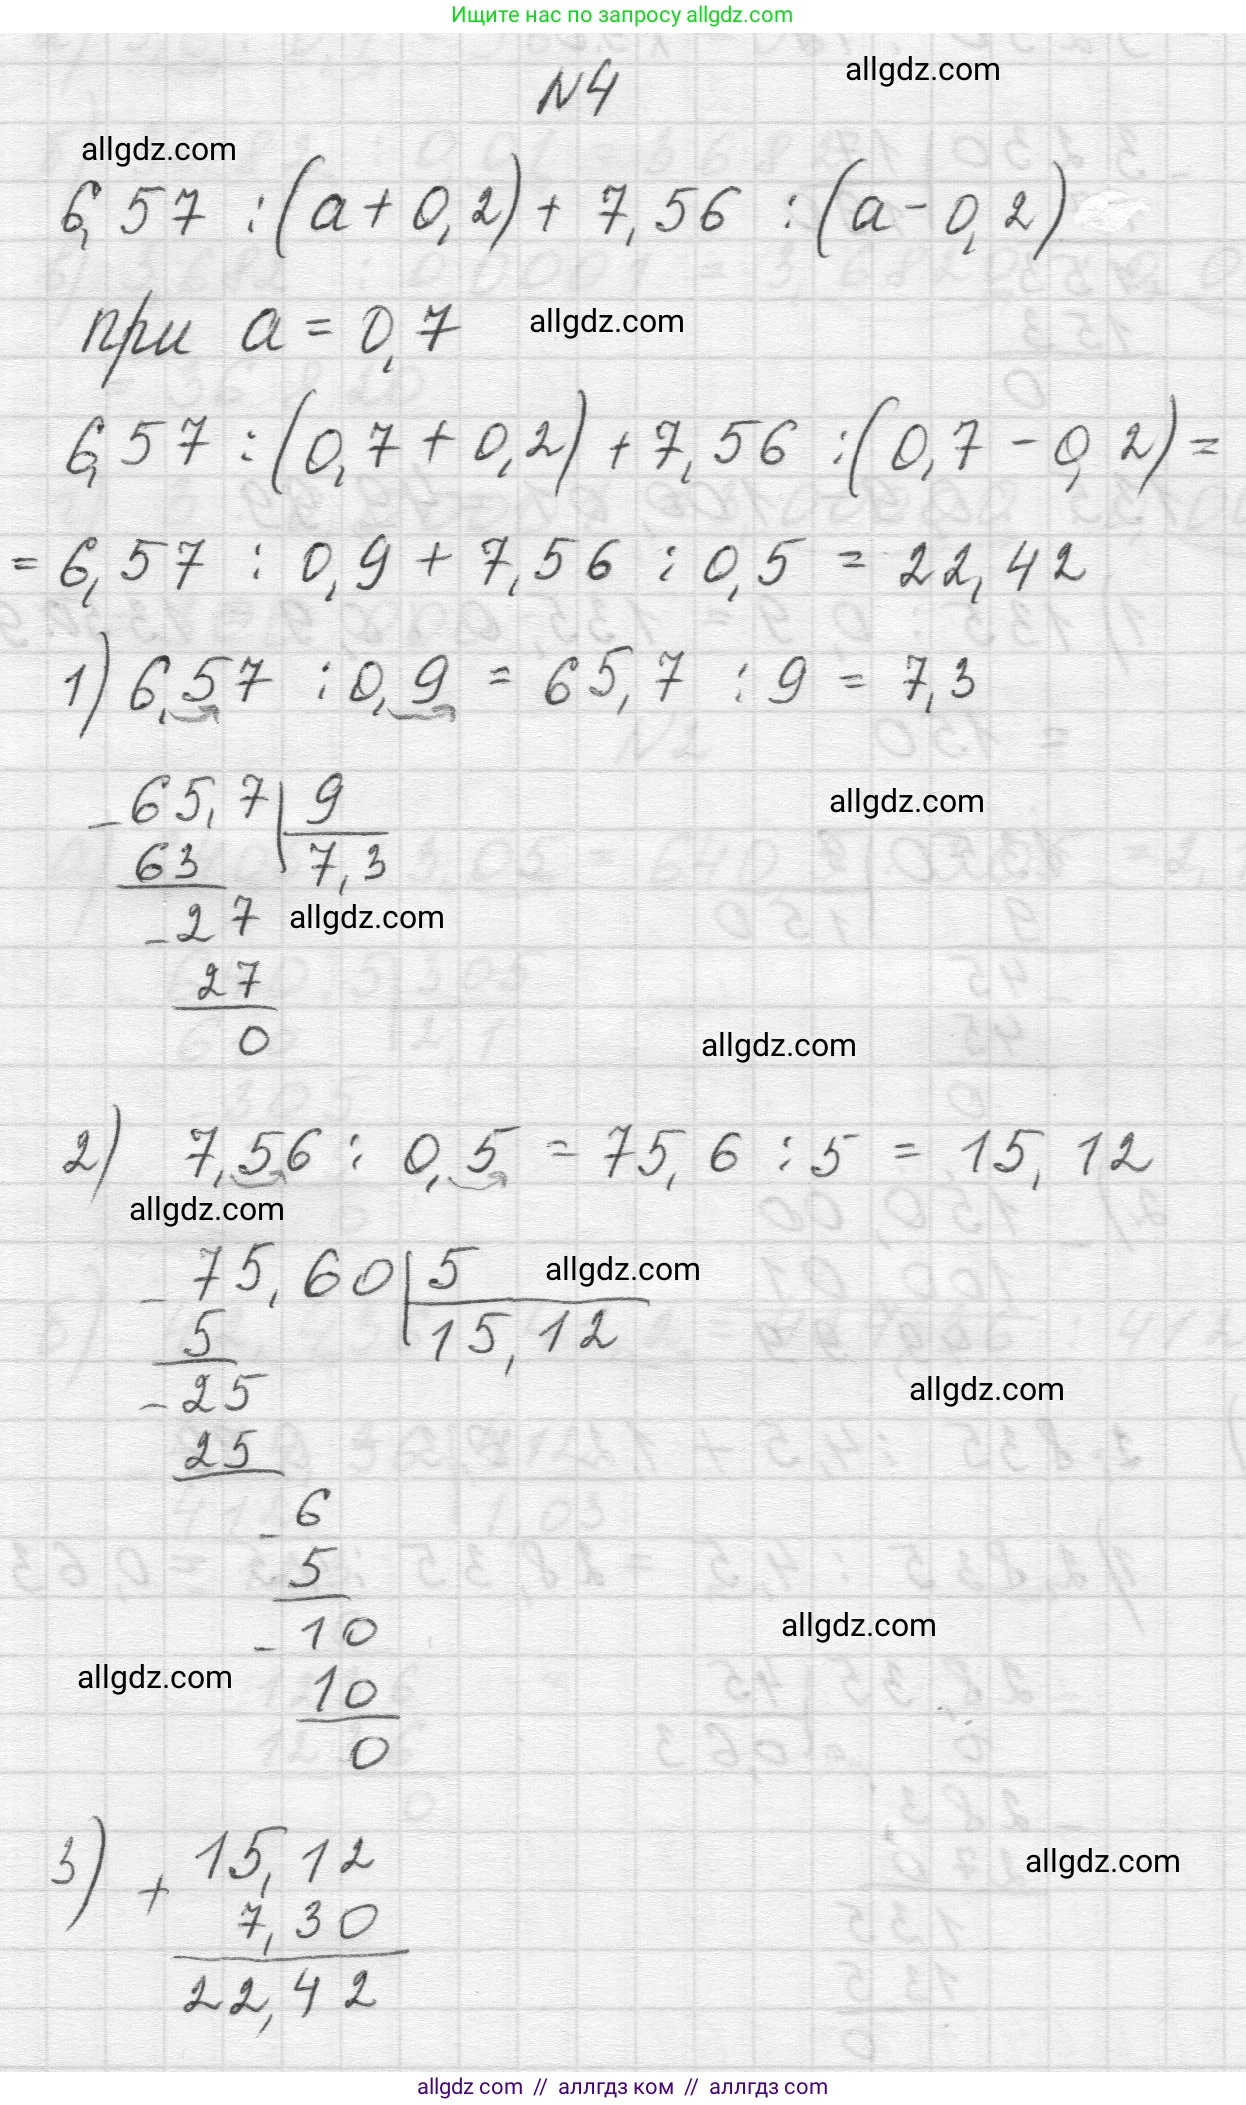 Ищите нас по запросу allgdz.com
N4
allgdz.com
allgdz.com
6,57 : (a + 0,2) + 7,56 : (a - 0,2)
при a = 0,7
allgdz.com
6,57 : (0,7 + 0,2) + 7,56 : (0,7 - 0,2) =
= 6,57 : 0,9 + 7,56 : 0,5 = 22,42
1) 6,57 : 0,9 = 65,7 : 9 = 7,3
- 65,7 | 9
allgdz.com
63 7,3
- 27
allgdz.com
27
0
allgdz.com
2) 7,56 : 0,5 = 75,6 : 5 = 15,12
allgdz.com
- 75,60 | 5
allgdz.com
5 15,12
- 25
allgdz.com
25
- 6
5
- 10
allgdz.com
allgdz.com
10
0
3) + 15,12
allgdz.com
7,30
22,42
allgdz com // аллгдз ком // аллгдз com